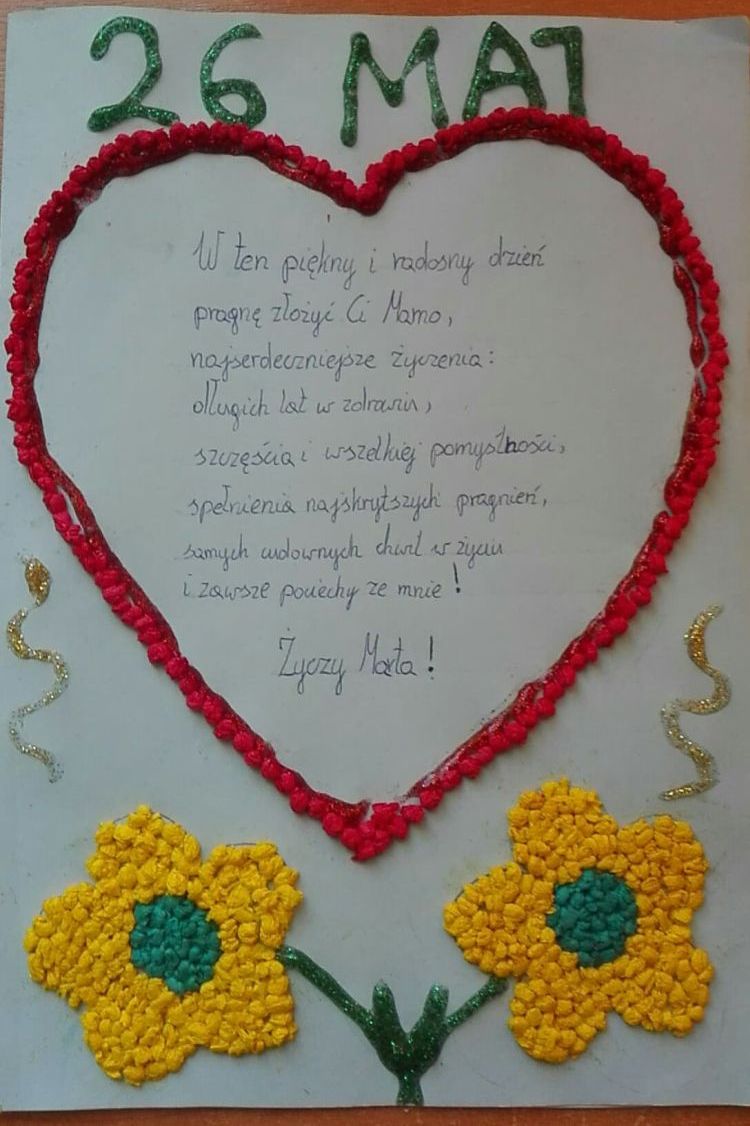 26 MAJ
W ten piękny i radosny dzień
pragnę złożyć Ci Mamo,
najserdeczniejsze życzenia:
długich lat w zdrowiu,
szczęścia i wszelkiej pomyślności,
spełnienia najskrytszych pragnień,
samych cudownych chwil w życiu
i zawsze pociechy ze mnie!
Życzy Marta!